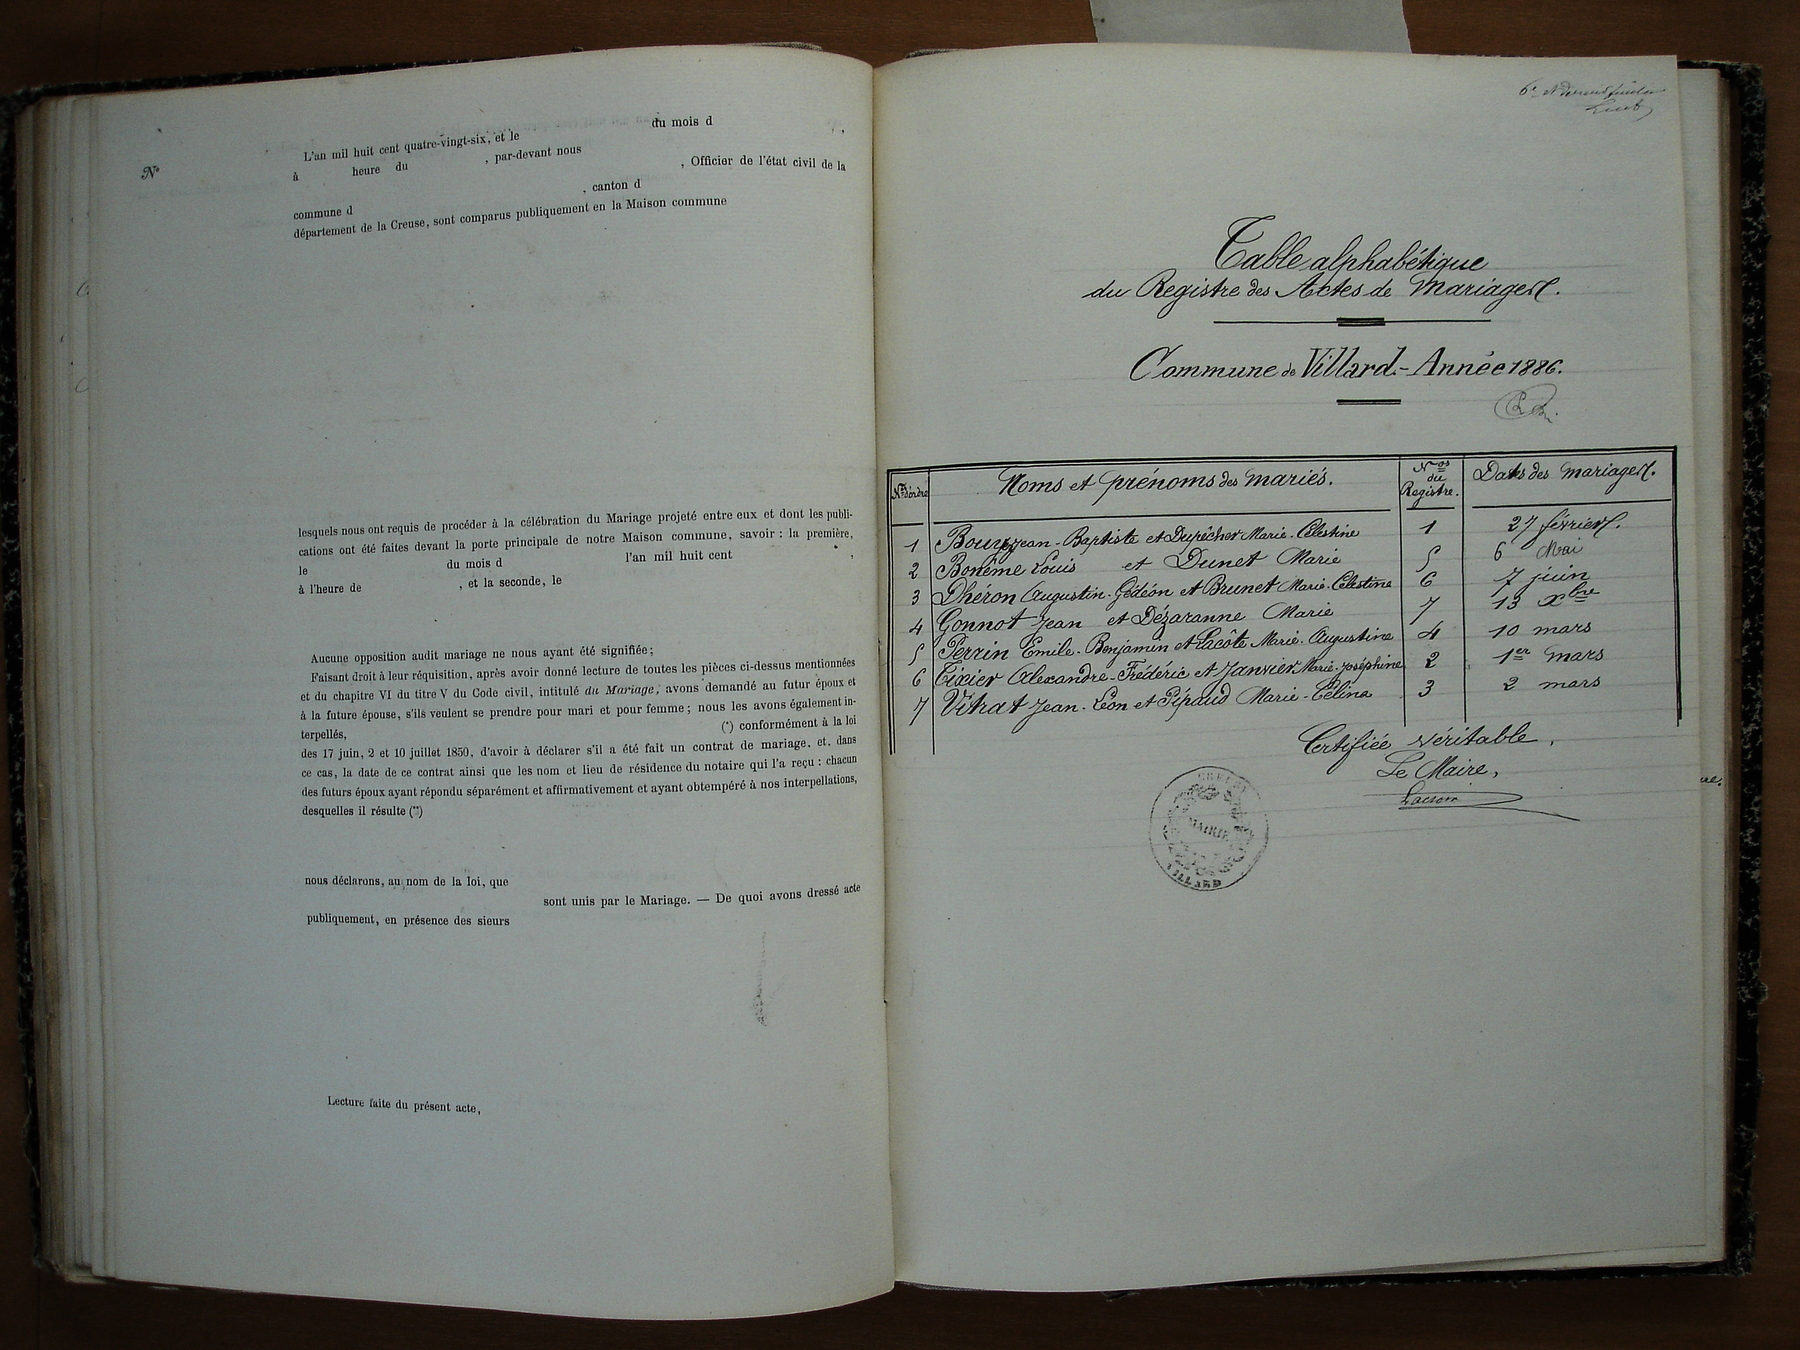 du mois d
L'an mil huit cent quatre-vingt-six, et le
Nº à heure du , par-devant nous
, Officier de l'état civil de la
commune d , canton d
département de la Creuse, sont comparus publiquement en la Maison commune
lesquels nous ont requis de procéder à la célébration du Mariage projeté entre eux et dont les publi-
cations ont été faites devant la porte principale de notre Maison commune, savoir : la première,
le du mois d l'an mil huit cent ,
à l'heure de , et la seconde, le
Aucune opposition audit mariage ne nous ayant été signifiée ;
Faisant droit à leur réquisition, après avoir donné lecture de toutes les pièces ci-dessus mentionnées
et du chapitre VI du titre V du Code civil, intitulé du Mariage, avons demandé au futur époux et
à la future épouse, s'ils veulent se prendre pour mari et pour femme ; nous les avons également in-
terpellés, (*) conformément à la loi
des 17 juin, 2 et 10 juillet 1850, d'avoir à déclarer s'il a été fait un contrat de mariage, et, dans
ce cas, la date de ce contrat ainsi que les nom et lieu de résidence du notaire qui l'a reçu : chacun
des futurs époux ayant répondu séparément et affirmativement et ayant obtempéré à nos interpellations,
desquelles il résulte (**)
nous déclarons, au nom de la loi, que
sont unis par le Mariage. — De quoi avons dressé acte
publiquement, en présence des sieurs
Lecture faite du présent acte,
6e et dernier
Table alphabétique
du Registre des Actes de Mariages.
Commune de Villard.- Année 1886.
Nos d'ordre Noms et prénoms des mariés. Nos du Registre. Dates des mariages.
1 Bouyjean-Baptiste et Dupécher Marie-Célestine 1 27 février.
2 Bonême Louis et Dunet Marie 5 6 Mai
3 Dheron Augustin-Gédéon et Brunet Marie-Célestine 6 7 juin
4 Gonnot Jean et Dézaranne Marie 7 13 Xbre
5 Perrin Emile-Benjamin et Lacôte Marie-Augustine 4 10 mars
6 Tixier Alexandre-Frédéric et Janvier Marie-Joséphine 2 1er mars
7 Vitrat Jean-Léon et Pépaud Marie-Célina 3 2 mars
Certifiée véritable,
Le Maire,
MAIRIE
VILLARD